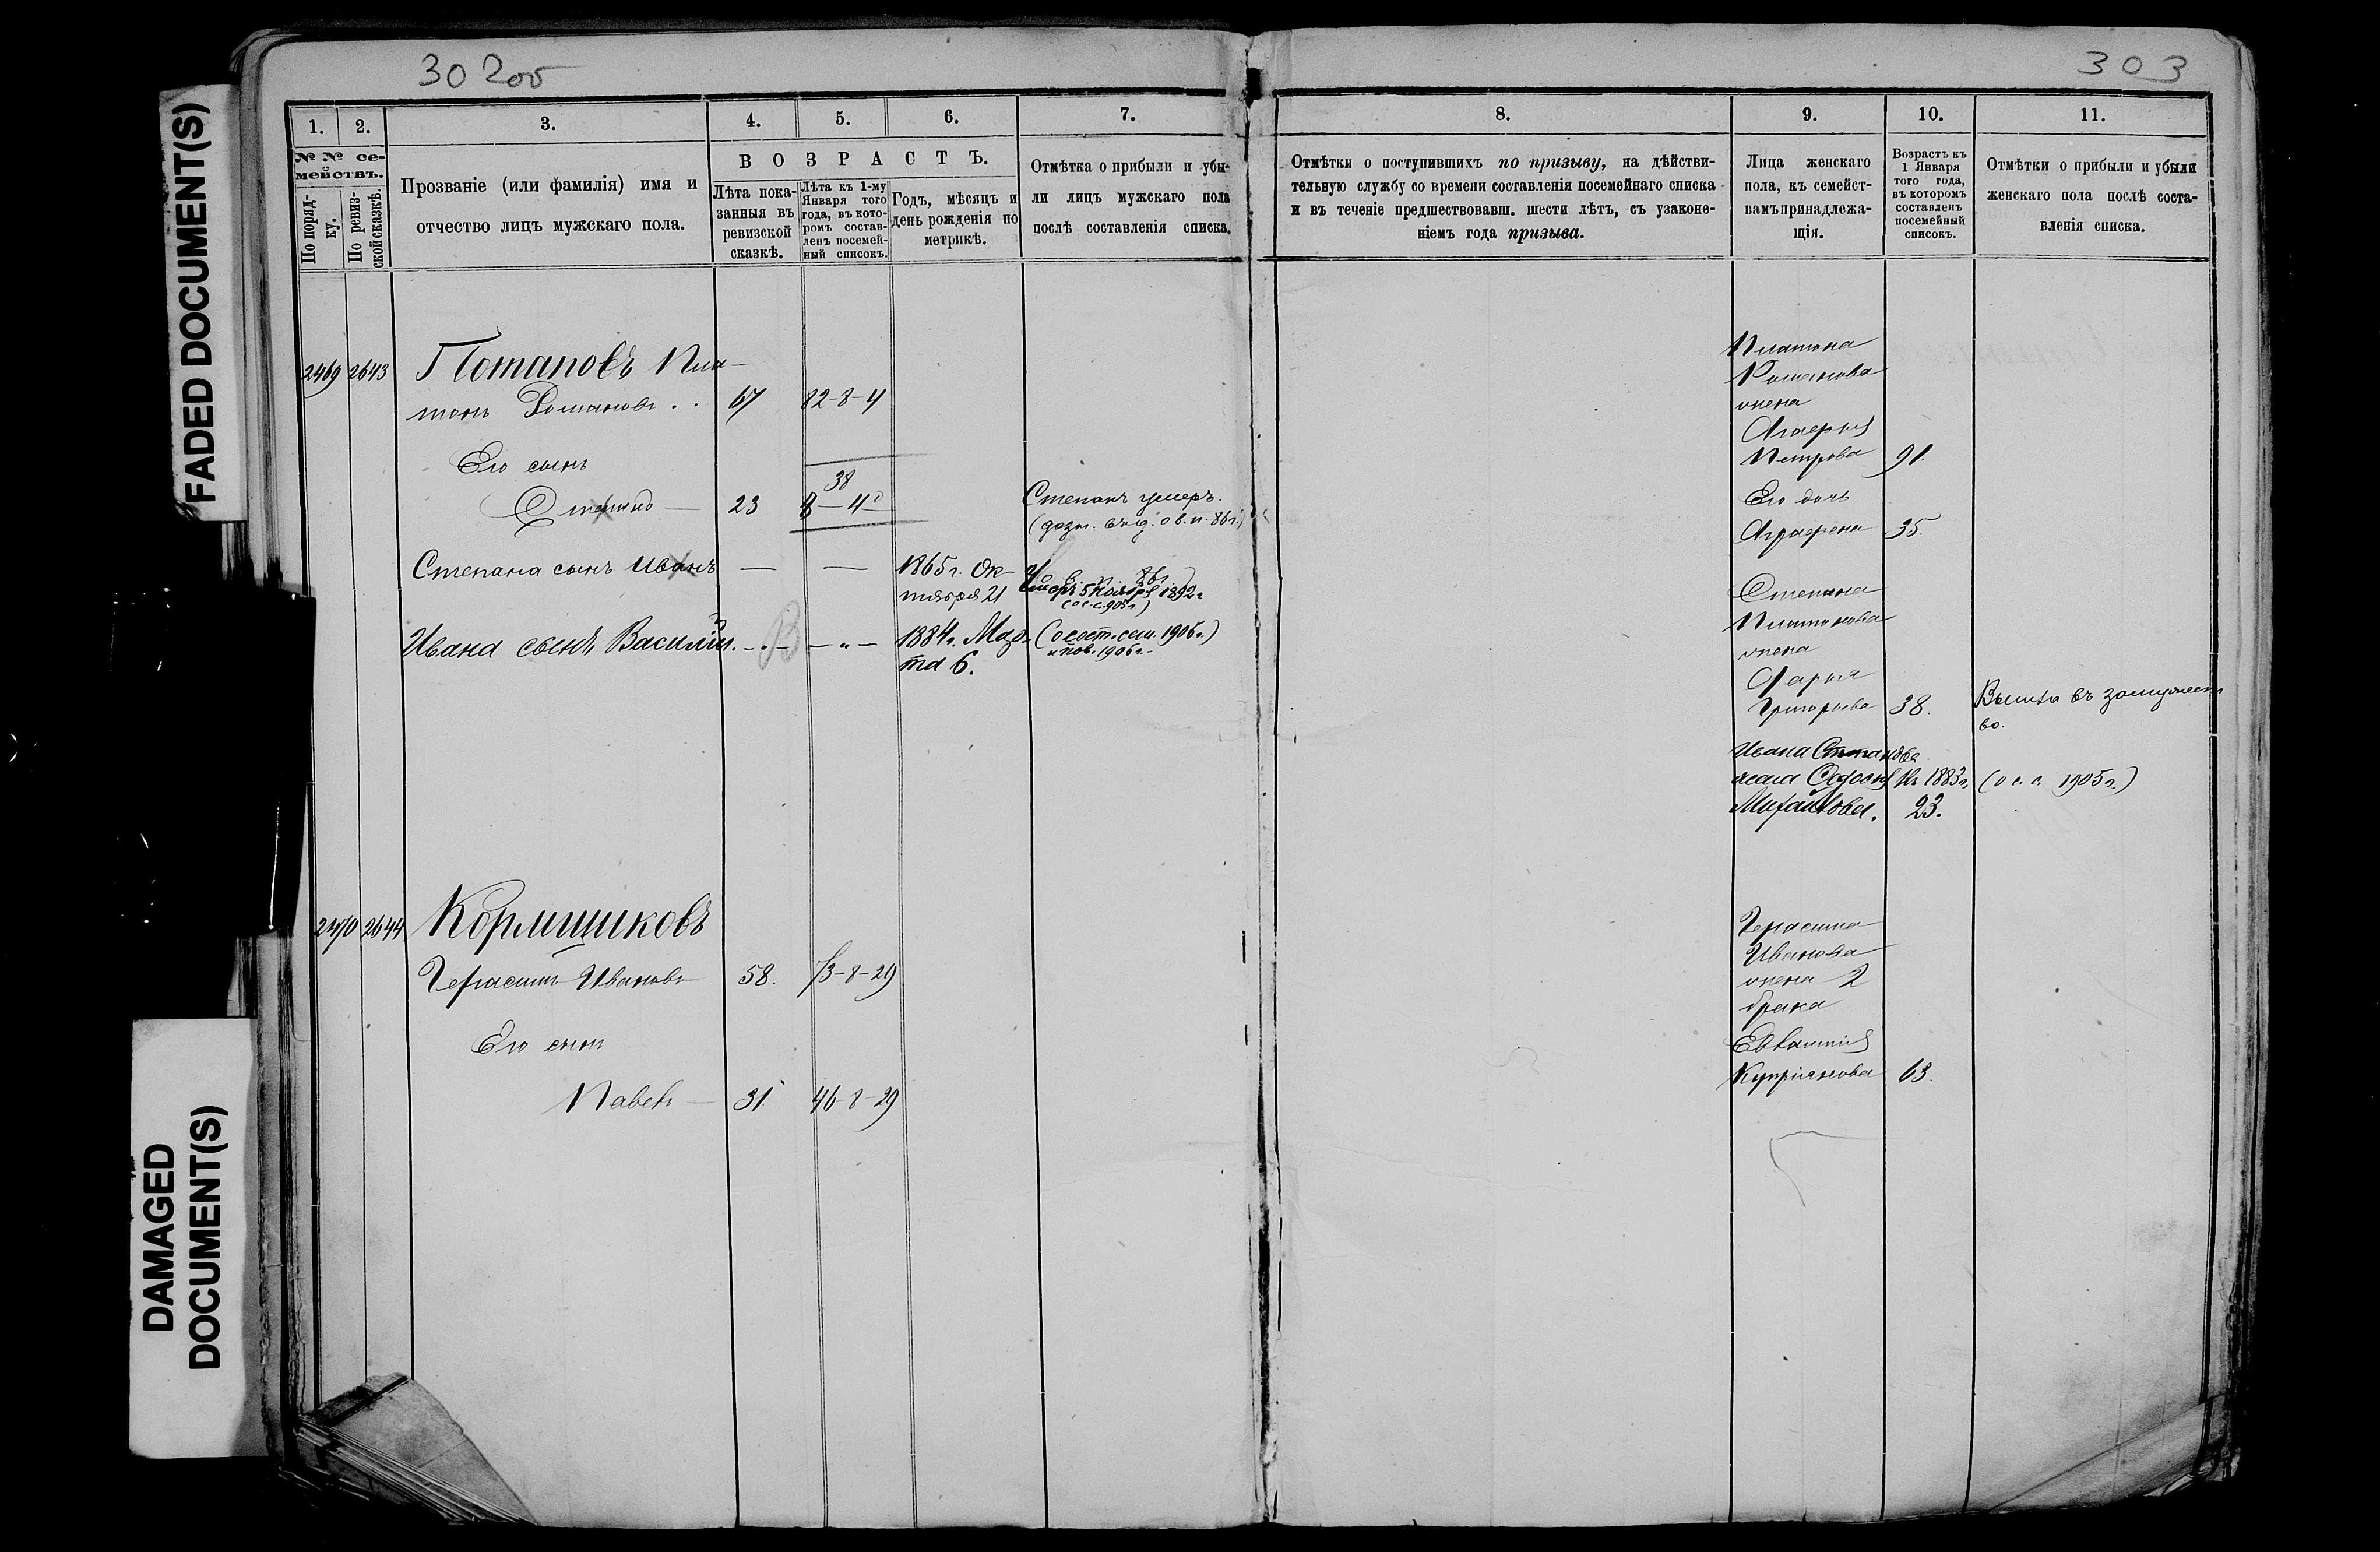 FADED DOCUMENT(S)
DAMAGED
DOCUMENT(S)
302об
303
1.
2.
3.
4.
5.
6.
7.
№ № се-
мействъ.
По поряд-
ку.
По ревиз-
ской сказкѣ.
Прозваніе (или фамилія) имя и
отчество лицъ мужскаго пола.
ВОЗРАСТЪ.
Лѣта пока-
занныя въ
ревизской
сказкѣ.
Лѣта къ 1-му
Января того
года, въ кото-
ромъ состав-
ленъ посемей-
ный списокъ.
Годъ, мѣсяцъ и
день рожденія по
метрикѣ.
Отмѣтка о прибыли и убы-
ли лицъ мужскаго пола
послѣ составленія списка.
2469 2643 Потаповъ Пла-
тонъ Романовъ . . 67 82-8-4
Его сынъ
38
Степанъ — 23 8-4
Степанъ умеръ.
Степана сынъ Иванъ — — 1865г. Ок-
тября 21
Умеръ 5 Ноября 1892г
Ивана сынъ Василій. 1884г. Мар-
та 6.
(о сост. сем. 1905г.)
2470 2644 Кормщиковъ
Герасимъ Ивановъ 58. 73-8-29
Его сынъ
Павелъ — 31. 46-8-29
8.
9.
10.
11.
Отмѣтки о поступившихъ по призыву, на дѣйстви-
тельную службу со времени составленія посемейнаго списка
и въ теченіе предшествовавш. шести лѣтъ, съ узаконе-
ніемъ года призыва.
Лица женскаго
пола, къ семейст-
вамъ принадлежа-
щія.
Возрастъ къ
1 Января
того года,
въ которомъ
составленъ
посемейный
списокъ.
Отмѣтки о прибыли и убыли
женскаго пола послѣ соста-
вленія списка.
Платона
Романова
жена
Петрова 91.
Его дочь
Аграфена 35.
Степана
Платонова
жена
Дарья
Григорьева 38.
Вышла въ замужест
во.
Ивана Степанова
жена Федосья Къ 1883г. (о с. с. 1905г.)
Михайлова. 23.
Герасима
Иванова
жена 2
брака
Евлампія
Купріянова 63.